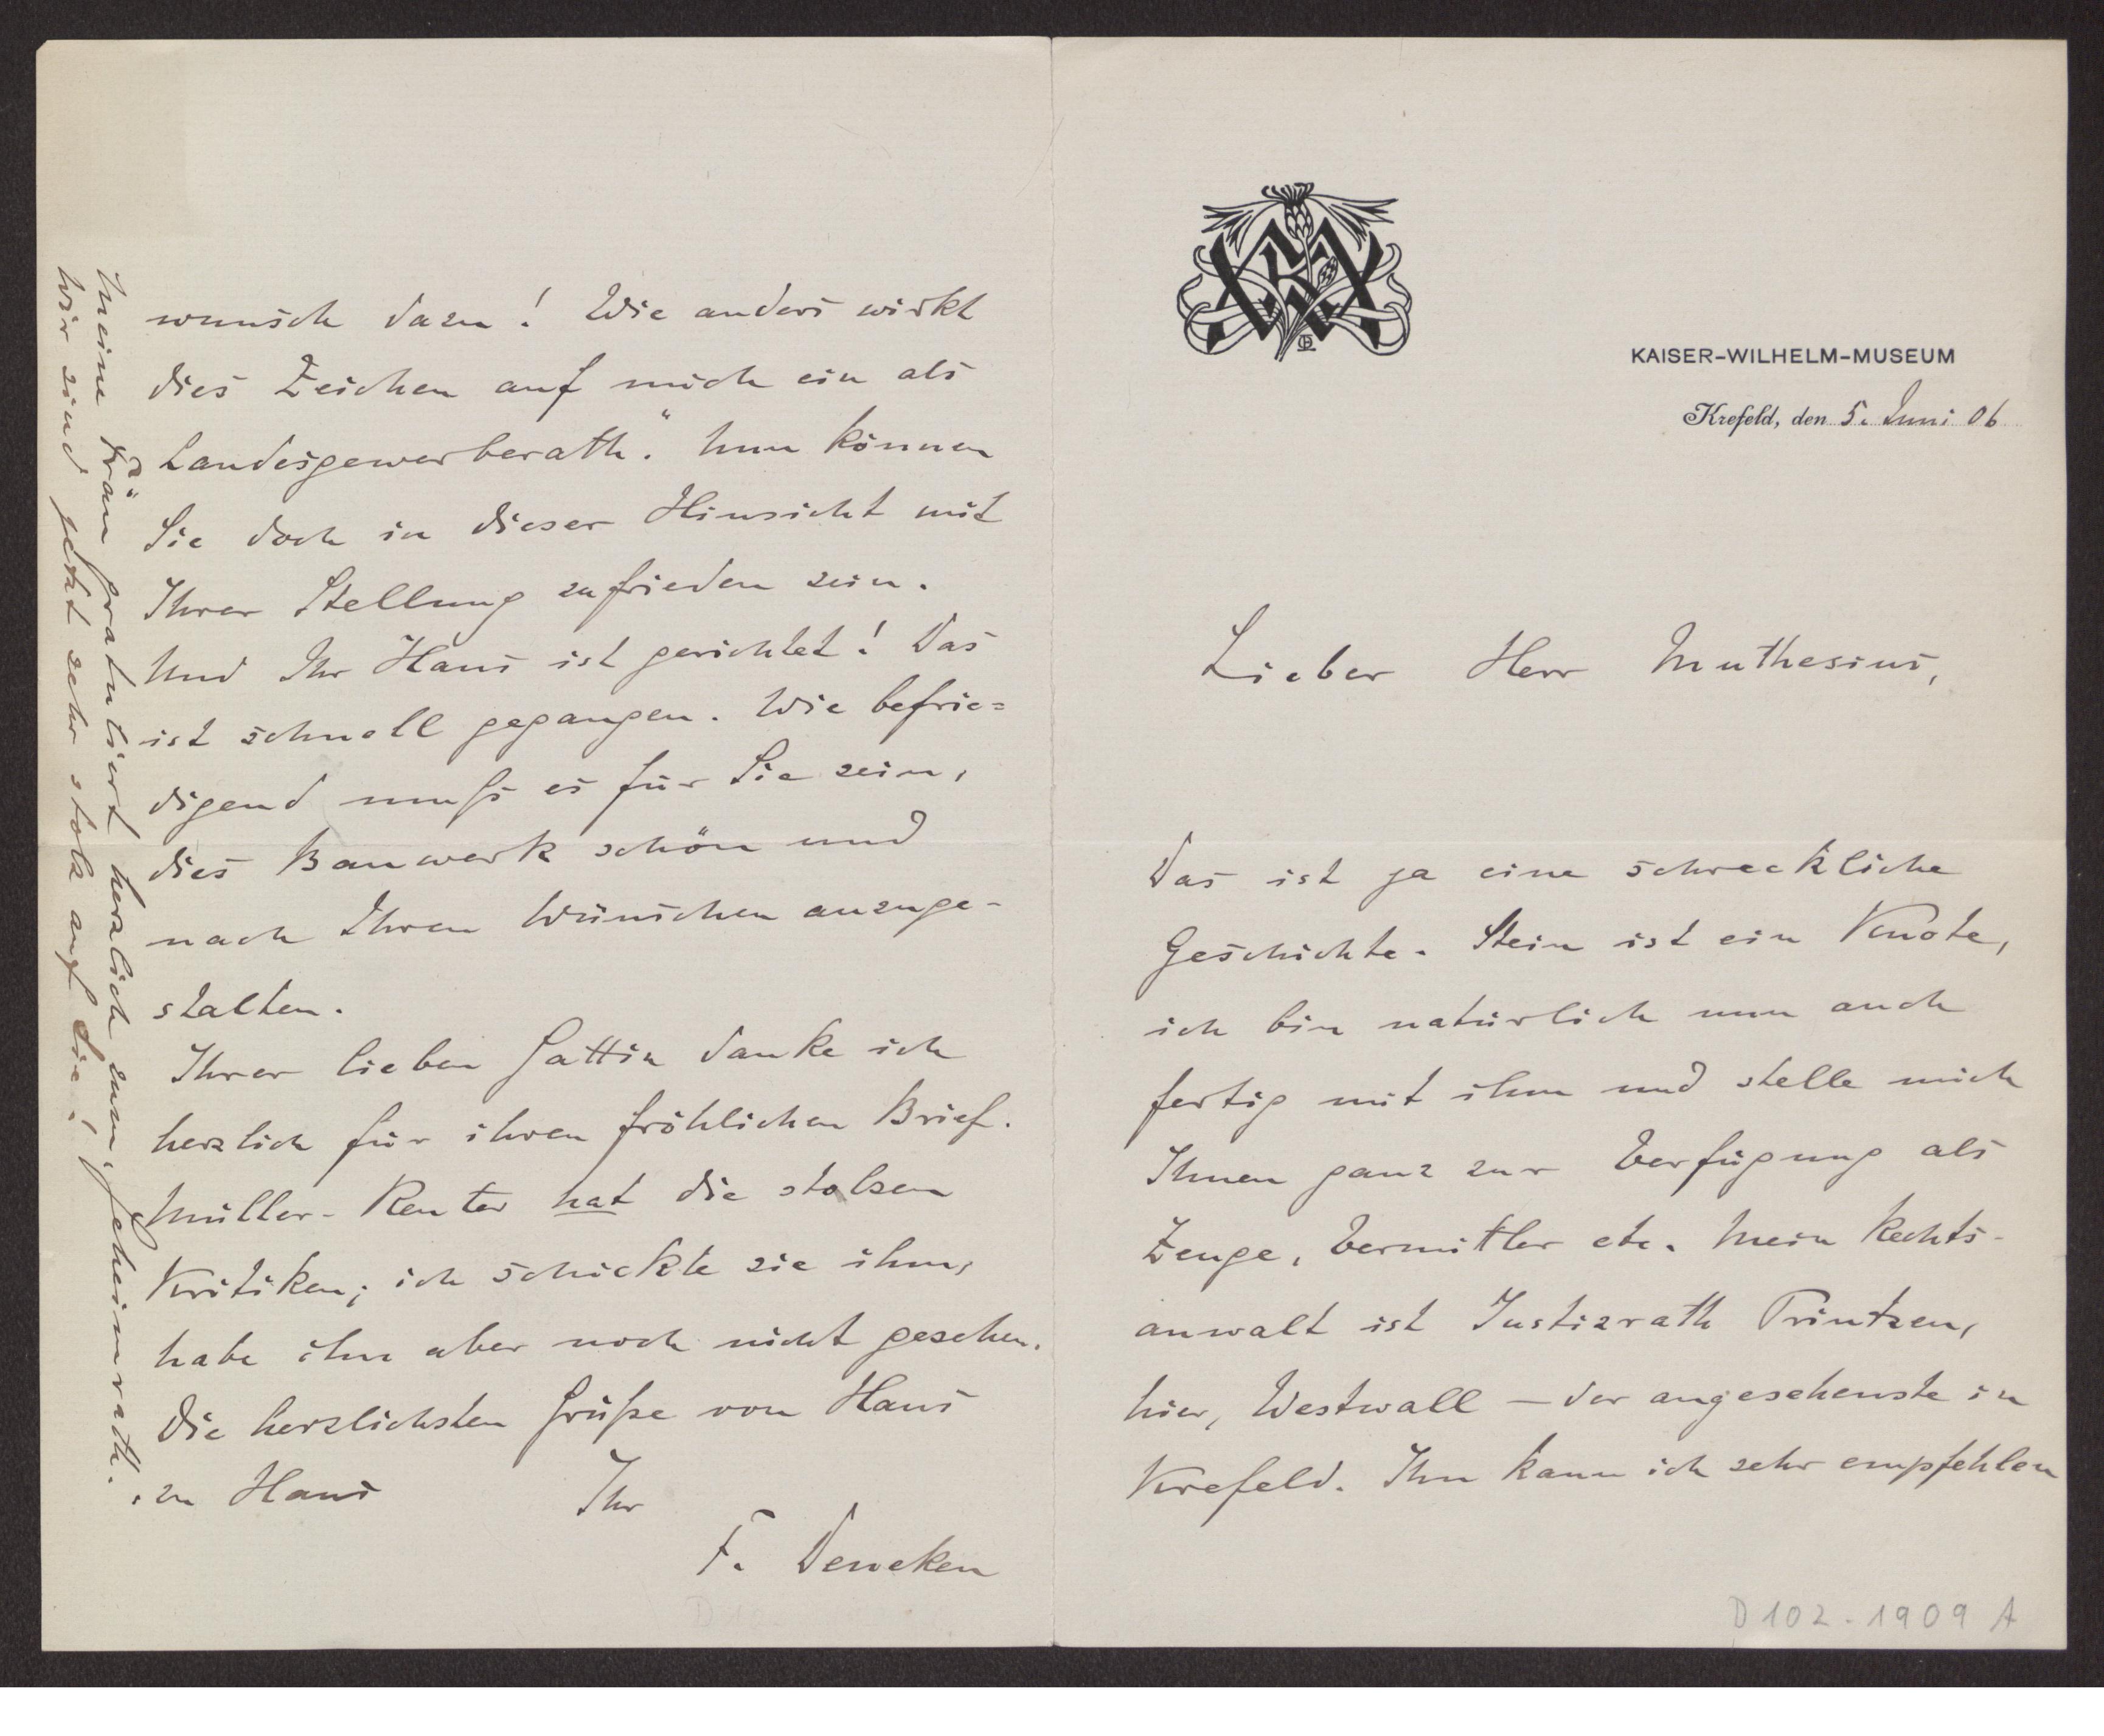 KAISER-WILHELM-MUSEUM
Krefeld, den 5. Juni 06
Lieber Herr Muthesius,
Das ist ja eine schreckliche
Geschichte. Stein ist ein Knote,
ich bin natürlich nun auch
fertig mit ihm und stelle mich
Ihnen ganz zur Verfügung als
Zeuge, Vermittler etc. Mein Rechts-
anwalt ist Justizrath Printzen,
hier, Westwall – der angesehenste in
Krefeld. Ihn kann ich sehr empfehlen
D 102-1909 A
wunsch dazu! Wie anders wirkt
dies Zeichen auf mich ein als
Landesgewerberath." Nun können
Sie doch in dieser Hinsicht mit
Ihrer Stellung zufrieden sein.
Und Ihr Haus ist gerichtet! Das
ist schnell gegangen. Wie befrie=
digend muß es für Sie sein,
dies Bauwerk schön und
nach Ihren Wünschen auszuge-
stalten.
Ihrer lieben Gattin danke ich
herzlich für ihren fröhlichen Brief.
Müller-Reuter hat die stolzen
Kritiken; ich schickte sie ihm,
habe ihn aber noch nicht gesehen.
Die herzlichsten Grüße von Haus
zu Haus Ihr
F. Deneken
Meine Frau gratuliert herzlich zum Geheimrath.
Wir sind jetzt sehr stolz auf Sie!